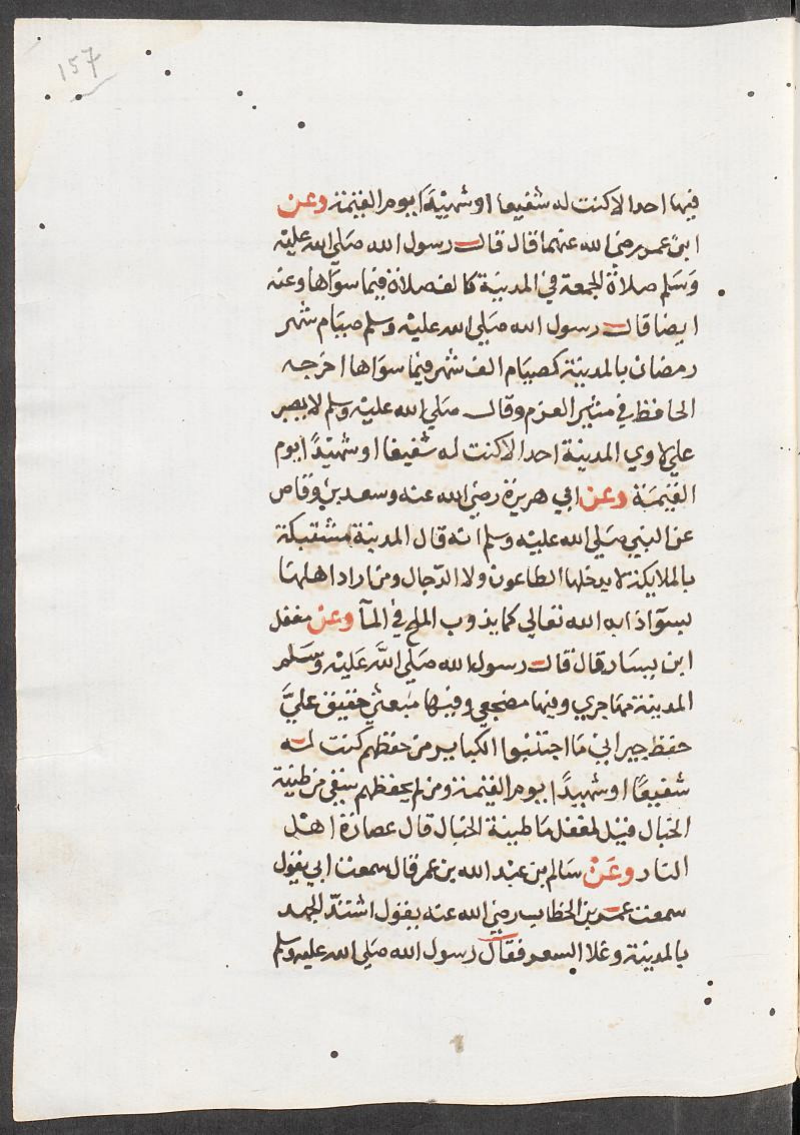 157
فيها احدا الا كنت له شفيعا او شهيدا يوم القيمة وعن
ابن عمر رضي الله عنهما قال قال رسول الله صلي الله عليه
وسلم صلاة الجمعة في المدينة كالف صلاة فيما سواها وعنه
ايضا قال رسول الله صلي الله عليه وسلم صيام شهر
رمضان بالمدينة كصيام الف شهر فيما سواها اخرجه
الحافظ في مثير العزم وقال صلي الله عليه وسلم لا يصبر
علي لاوي المدينة احدا الا كنت له شفيعا او شهيدًا يوم
القيمة وعن ابي هريرة رضي الله عنه وسعد بن وقاص
عن النبي صلي الله عليه وسلم انه قال المدينة مشتبكة
بالملايكة لا يدخلها الطاعون ولا الدجال ومن اراد اهلها
بسوٓ اذابه الله تعالي كما يذوب الملح في المآ وعن معقل
ابن يسار قال قال رسول الله صلي الله عليه وسلم
المدينة مهاجري وفيها مضجعي وفيها مبعثي حقيق عليَّ
حفظ جيراني ما اجتنبوا الكباير من حفظهم كنت له
شفيعًا او شهيدًا يوم القيمة ومن لم يحفظهم سقي من طينة
الخبال قيل لمعقل ما طينة الخبال قال عصارة اهل
النار وعَنْ سالم بن عبد الله بن عمر قال سمعت ابي يقول
سمعت عمر بن الخطاب رضي الله عنه يقول اشتدّ الجهد
بالمدينة وغلا السعر فقال رسول الله صلي الله عليه وسلم